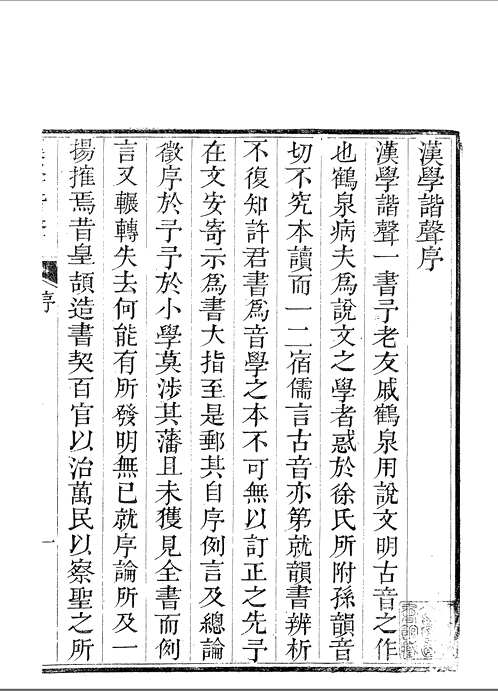 漢學諧聲序
漢學諧聲一書予老友戚鶴泉用說文明古音之作
也鶴泉病夫為說文之學者惑於徐氏所附孫韻音
切不究本讀而一二宿儒言古音亦第就韻書辨析
不復知許君書為音學之本不可無以訂正之先予
在文安寄示為書大指至是郵其自序例言及總論
徵序於予予於小學莫涉其藩且未獲見全書而例
言又輾轉失去何能有所發明無已就序論所及一
揚搉焉昔皇頡造書契百官以治萬民以察聖之所
序
一